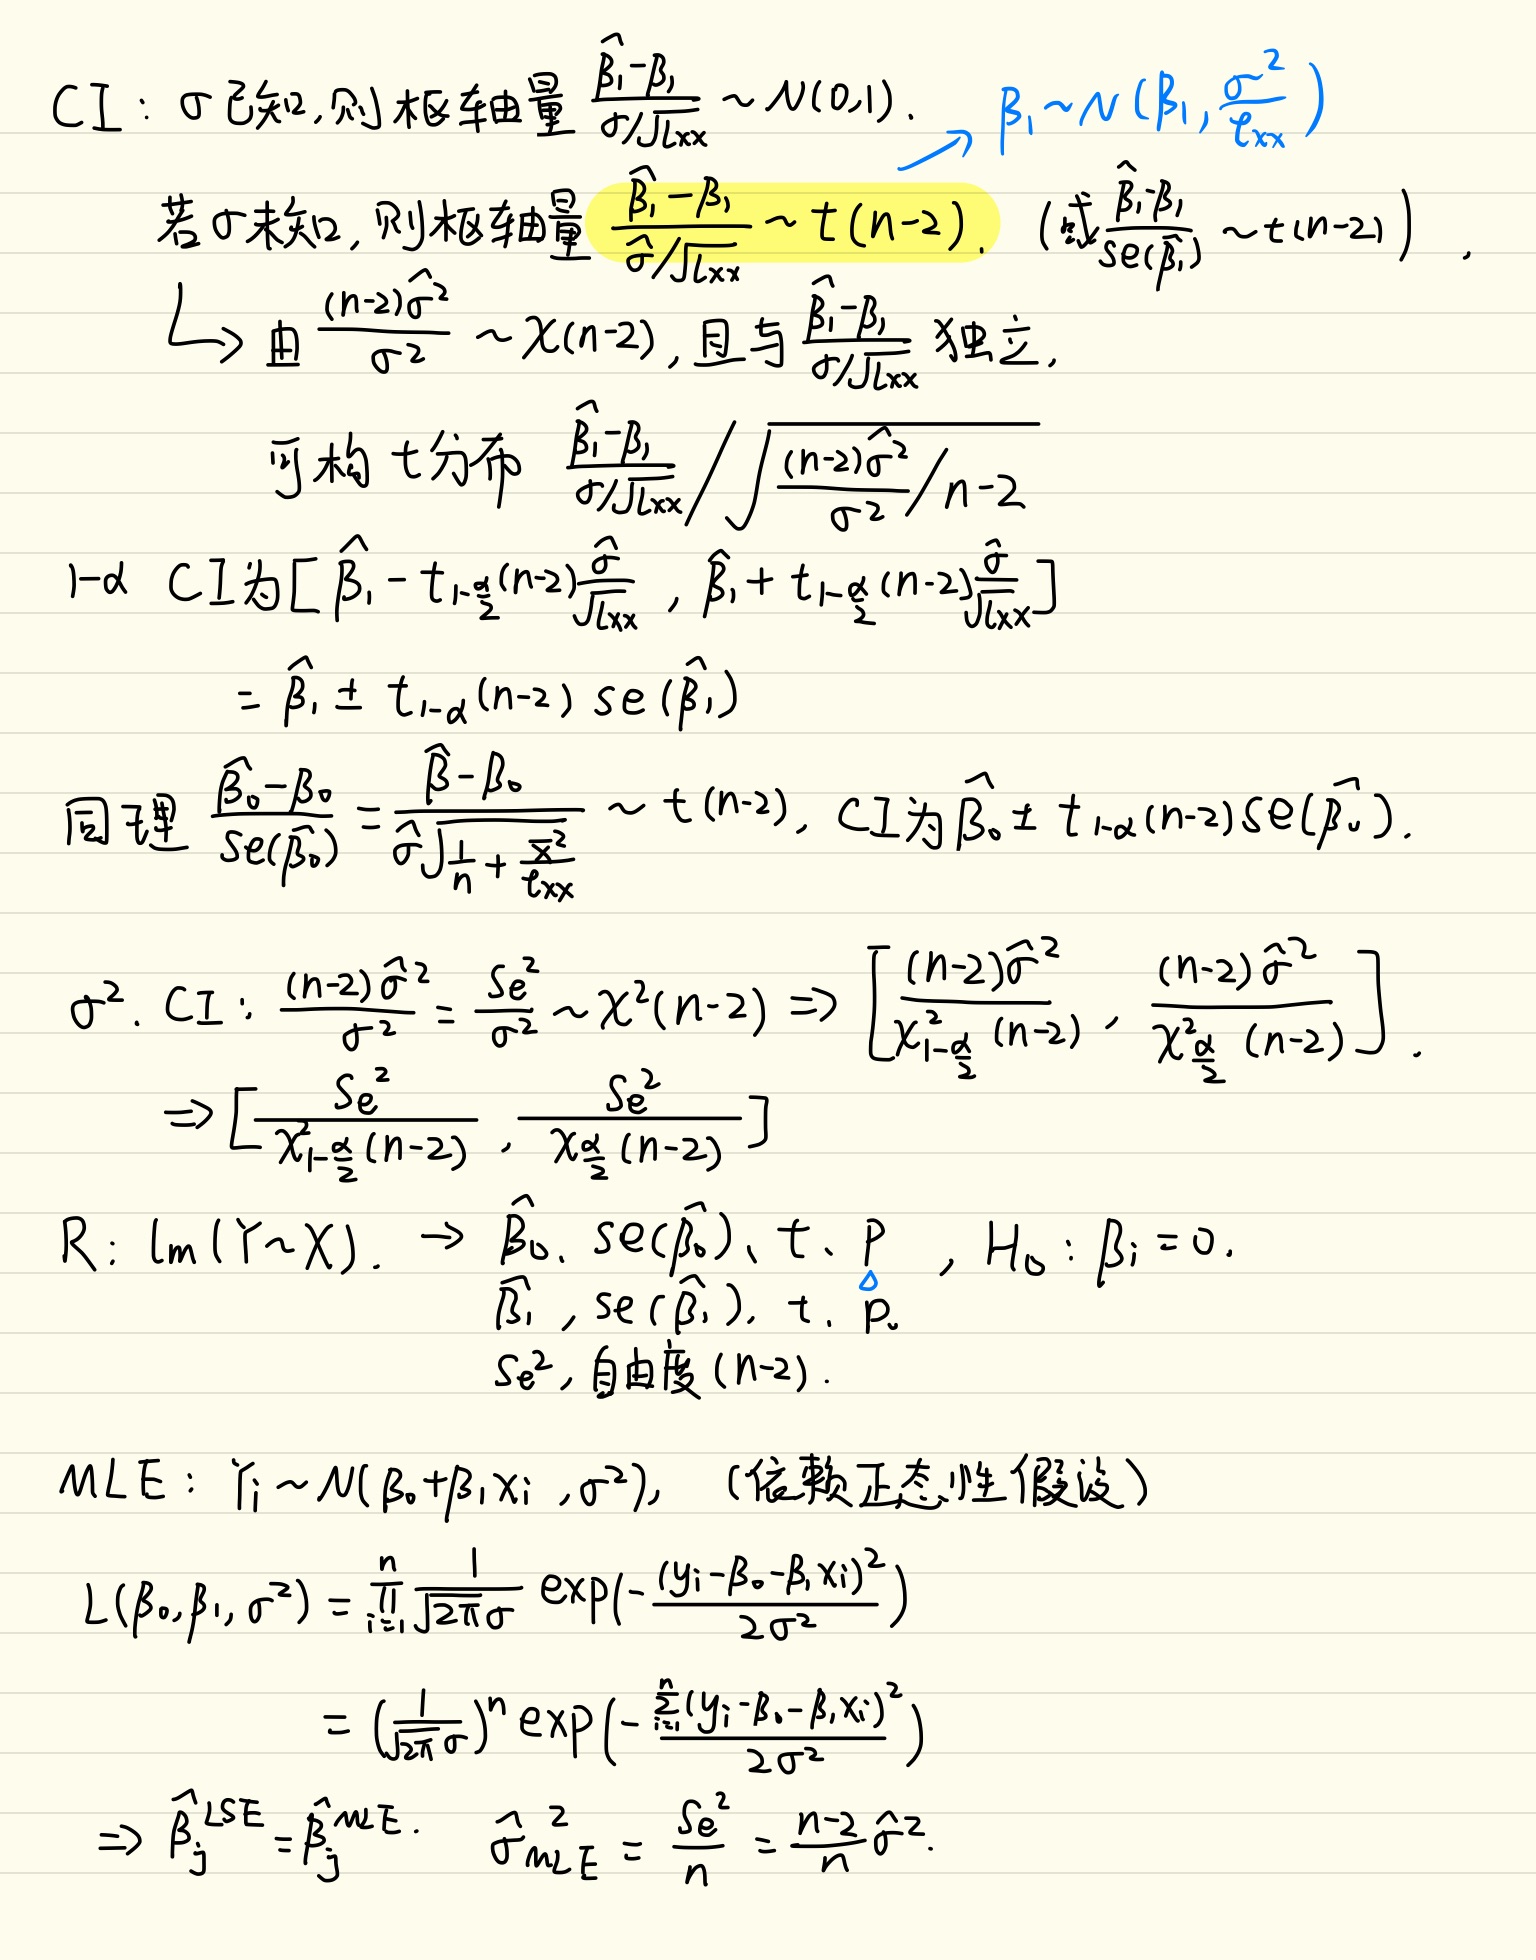 CI: σ已知, 则枢轴量 (β̂₁-β₁)/(σ/√lxx) ~ N(0,1).
β₁~N(β₁, σ²/ℓxx)
若σ未知, 则枢轴量 (β̂₁-β₁)/(σ̂/√lxx) ~ t(n-2). (或 (β̂₁-β₁)/se(β̂₁) ~ t(n-2)),
↳ 由 (n-2)σ̂²/σ² ~ χ(n-2), 且与 (β̂₁-β₁)/(σ/√lxx) 独立.
可构t分布 (β̂₁-β₁)/(σ/√lxx) / √((n-2)σ̂²/σ² / n-2)
1-α CI为[β̂₁ - t_{1-α/2}(n-2) σ̂/√lxx , β̂₁ + t_{1-α/2}(n-2) σ̂/√lxx]
= β̂₁ ± t_{1-α}(n-2) se(β̂₁)
同理 (β̂₀-β₀)/se(β̂₀) = (β̂-β₀)/(σ̂√(1/n + x̄²/ℓxx)) ~ t(n-2), CI为 β̂₀ ± t_{1-α}(n-2)se(β̂₀).
σ². CI: (n-2)σ̂²/σ² = Se²/σ² ~ χ²(n-2) ⇒ [(n-2)σ̂²/χ²_{1-α/2}(n-2), (n-2)σ̂²/χ²_{α/2}(n-2)].
⇒ [Se²/χ²_{1-α/2}(n-2), Se²/χ_{α/2}(n-2)]
R: lm(Y~X). → β̂₀、se(β̂₀)、t、p , H₀: βᵢ=0.
β̂₁, se(β̂₁), t. p.
Se², 自由度(n-2).
MLE: Yᵢ~N(β₀+β₁xᵢ, σ²), (倍赖正态性假设)
L(β₀,β₁,σ²) = ∏_{i=1}^{n} 1/(√2π σ) exp(-(yᵢ-β₀-β₁xᵢ)²/2σ²)
= (1/(√2π σ))ⁿ exp(-∑_{i=1}^{n}(yᵢ-β₀-β₁xᵢ)²/2σ²)
⇒ β̂ⱼ^{LSE} = β̂ⱼ^{MLE}. σ̂²_{MLE} = Se²/n = (n-2)/n σ̂².